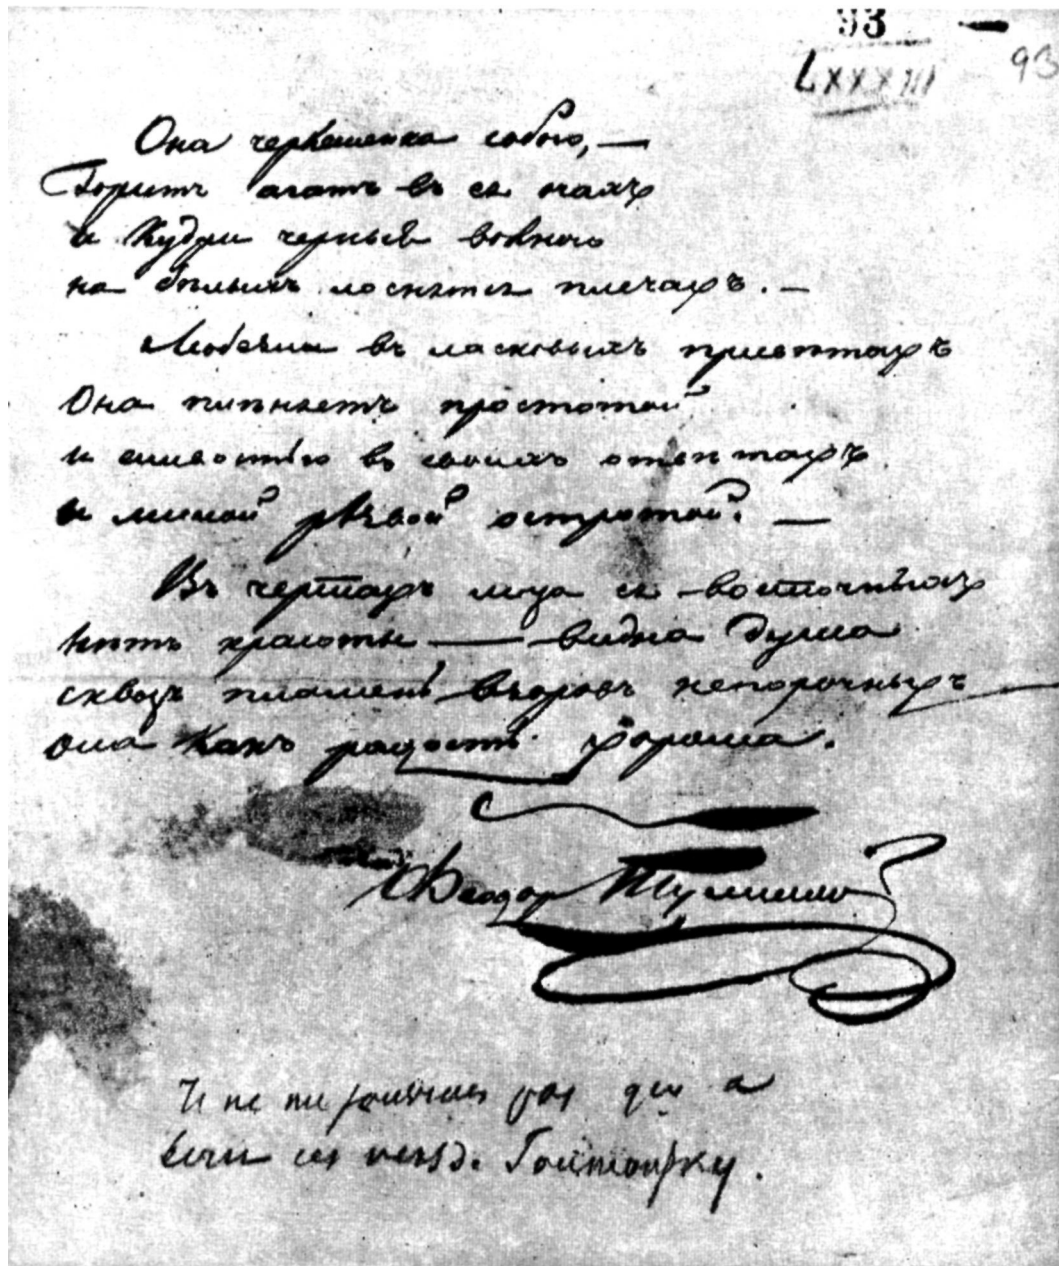 93
LXXXIII 93
Она черкешенка собою, —
Горитъ агатъ въ ея очахъ
и Кудри черныя волною
на бѣлыхъ лоснятся плечахъ. —
Любезна въ ласковыхъ привѣтахъ
Она плѣняетъ простотой
и живостью въ своихъ отвѣтахъ
и милой рѣзвой остротой. —
Въ чертахъ лица ея восточныхъ
нѣтъ красоты — видна душа
сквозь пламень взоровъ непорочныхъ
она Какъ радость хороша.
Феодор Туманский
Je ne me souviens pas qui a
écrit ces vers d.